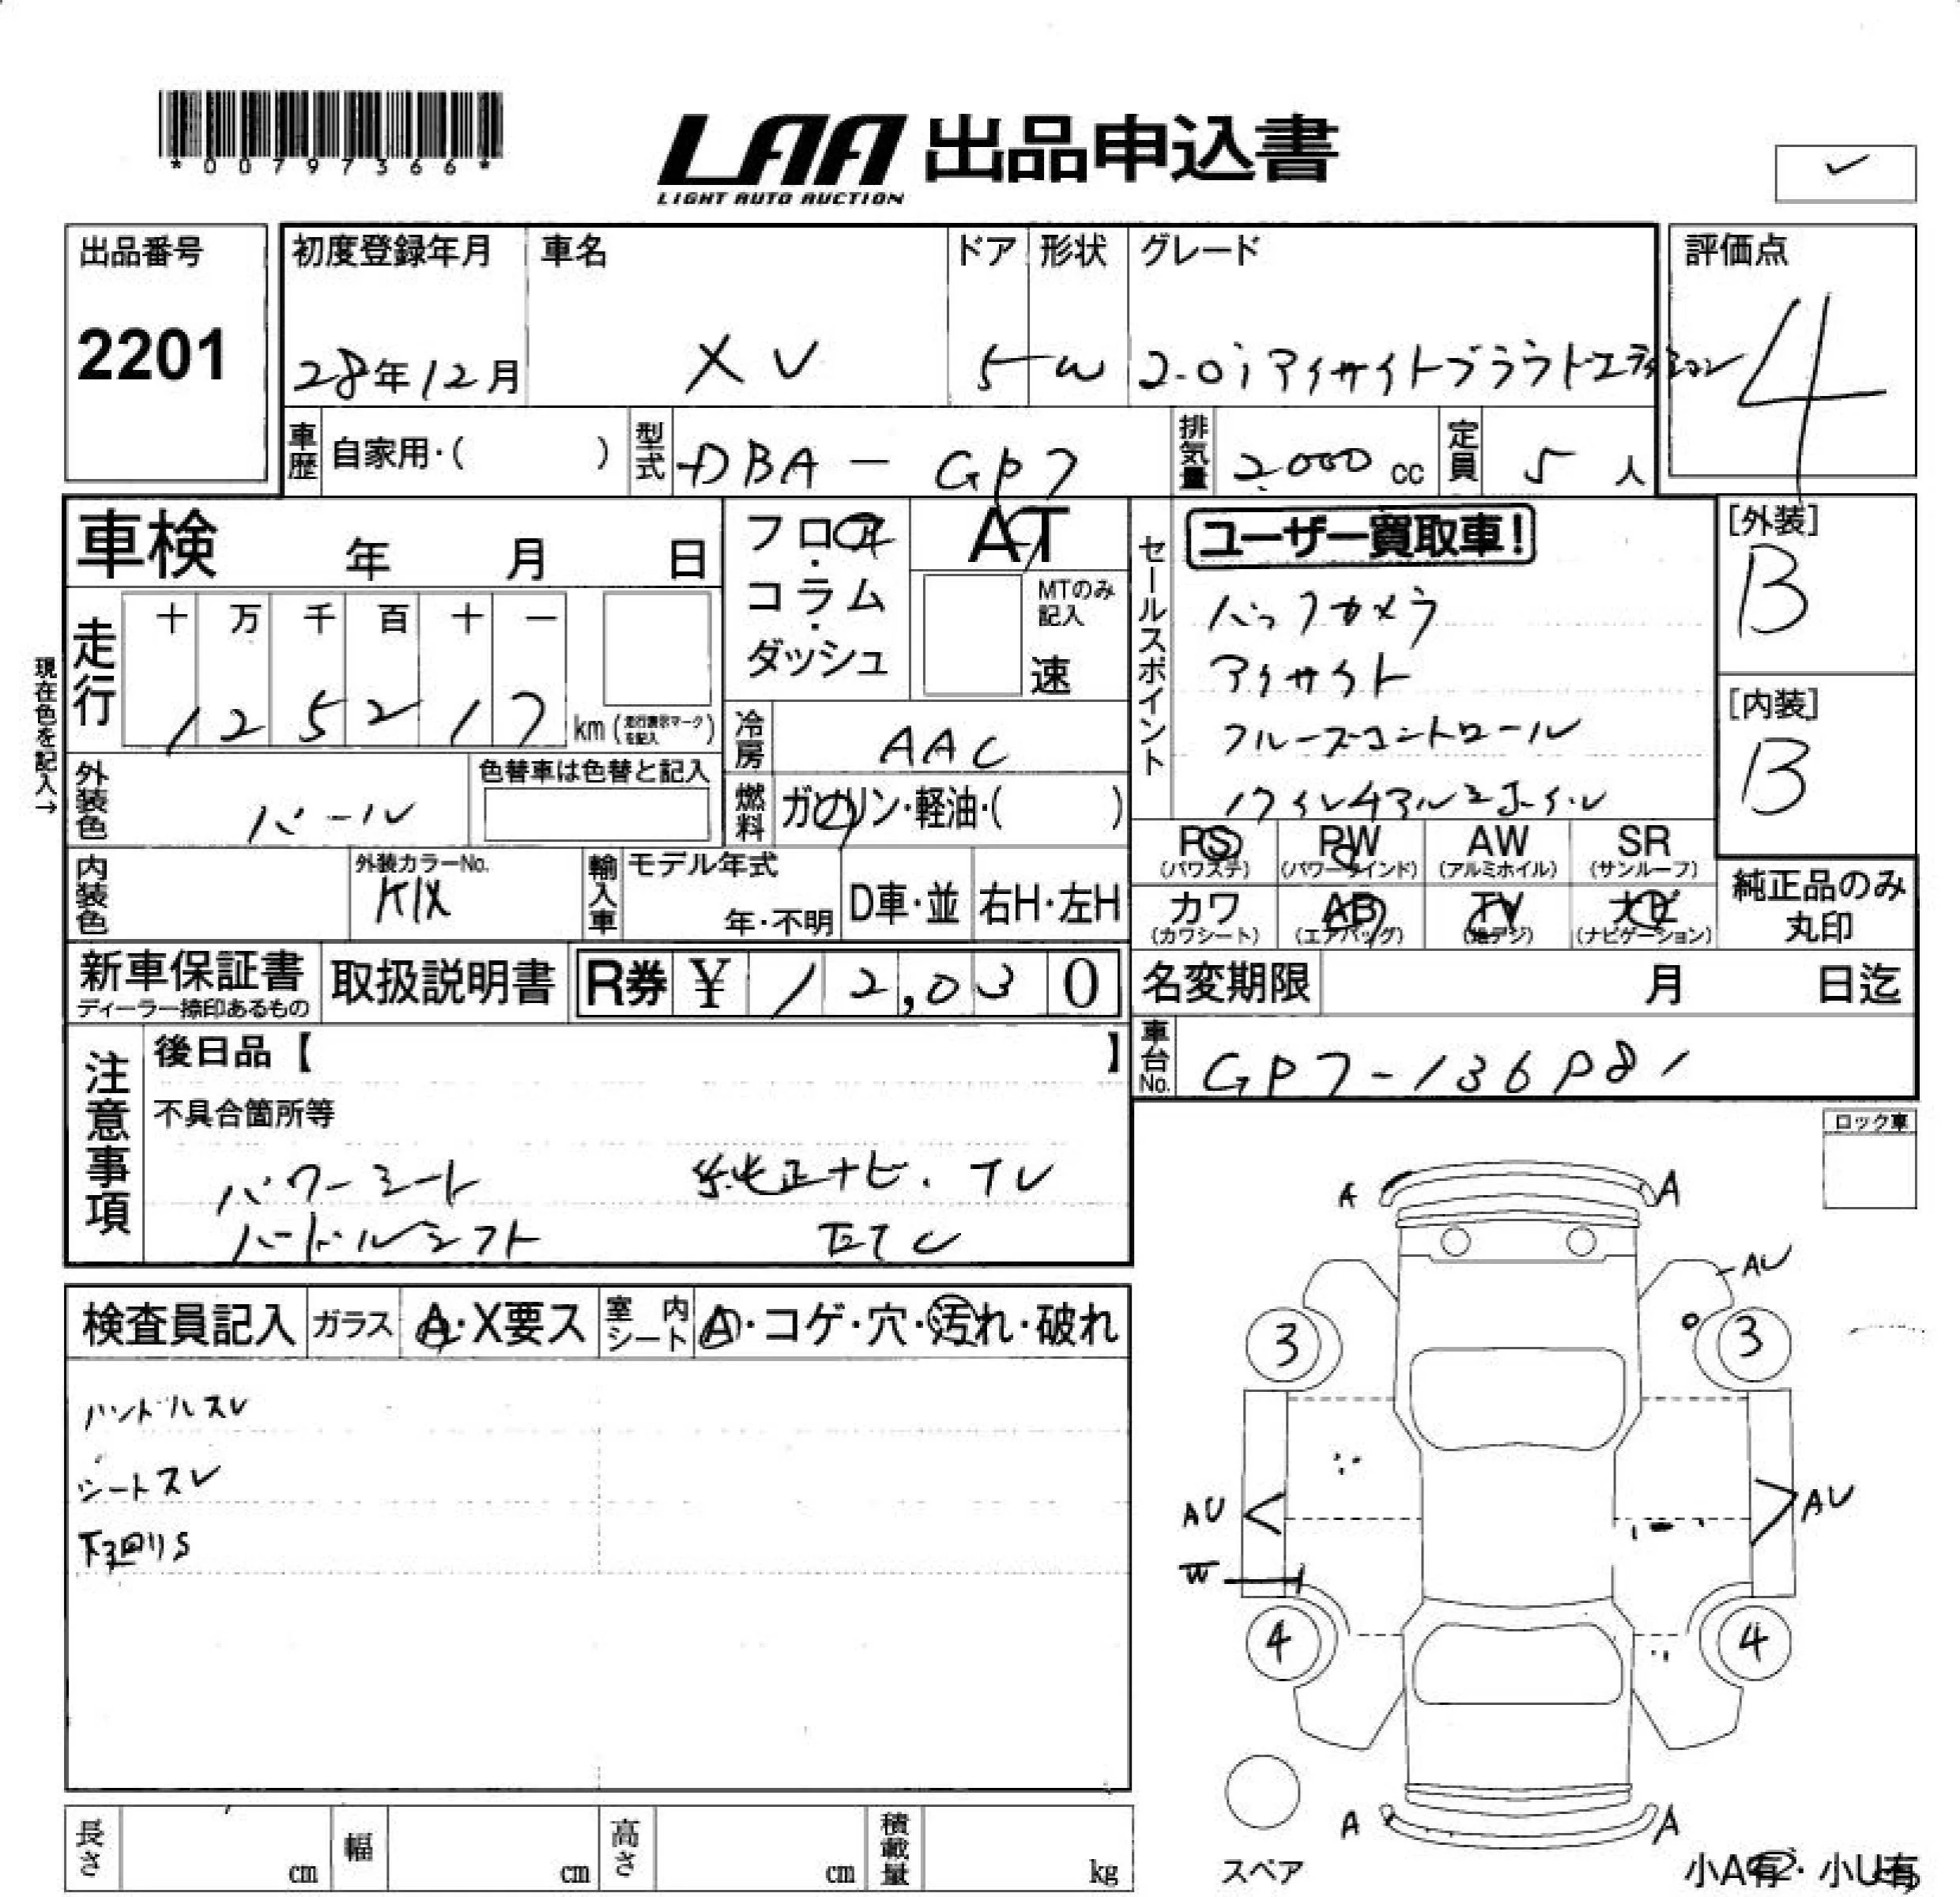 *00797366*
LAA 出品申込書
LIGHT AUTO AUCTION
出品番号
2201
初度登録年月 車名 ドア 形状 グレード
28年12月 XV 5 W 2.0i アイサイトプラウドエディション
評価点
4
車歴 自家用・( ) 型式 DBA-GP7 排気量 2000 cc 定員 5 人
車検 年 月 日
フロア・コラム・ダッシュ
AT
MTのみ記入
速
セールスポイント
ユーザー買取車!
バックカメラ
アイサイト
クルーズコントロール
[外装]
B
[内装]
B
現在色を記入→
走行
十 万 千 百 十 一
1 2 5 2 1 7 km (走行表示マークを記入)
冷房 AAC
外装色 パール
色替車は色替と記入
燃料 ガソリン・軽油・( )
内装色
外装カラーNo.
K1X
輸入車 モデル年式
年・不明 D車・並 右H・左H
PS (パワステ) PW (パワーウインド) AW (アルミホイル) SR (サンルーフ)
カワ (カワシート) AB (エアバッグ) TV (地デジ) ナビ (ナビゲーション)
純正品のみ丸印
新車保証書
ディーラー捺印あるもの
取扱説明書 R券 ¥ 12,030
名変期限 月 日迄
車台No.
注意事項
後日品【 】
不具合箇所等
パワーシート 純正ナビ.TV
パドルシフト ETC
ロック車
検査員記入 ガラス A・X要ス 室内シート A・コゲ・穴・汚れ・破れ
ハンドルスレ
シートスレ
下廻りS
A A
AU
3 3
AU AU
W
4 4
A A
スペア
小A有・小U有
長さ cm 幅 cm 高さ cm 積載量 kg